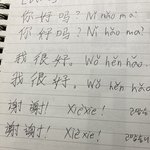 你好吗? Nǐ hǎo ma?
你好吗? Nǐ hǎo ma?
我很好。 Wǒ hěn hǎo.
我很好。 Wǒ hěn hǎo.
谢谢! Xièxie!
谢谢! Xièxie!